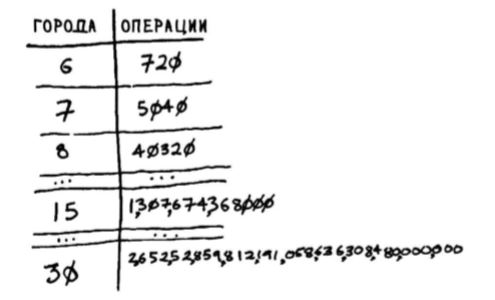 ГОРОДА ОПЕРАЦИИ
6 720
7 5040
8 40320
... ...
15 1,307,674,368000
... ...
30 2,652,52,859,812,191,058,636,308,480,000,000